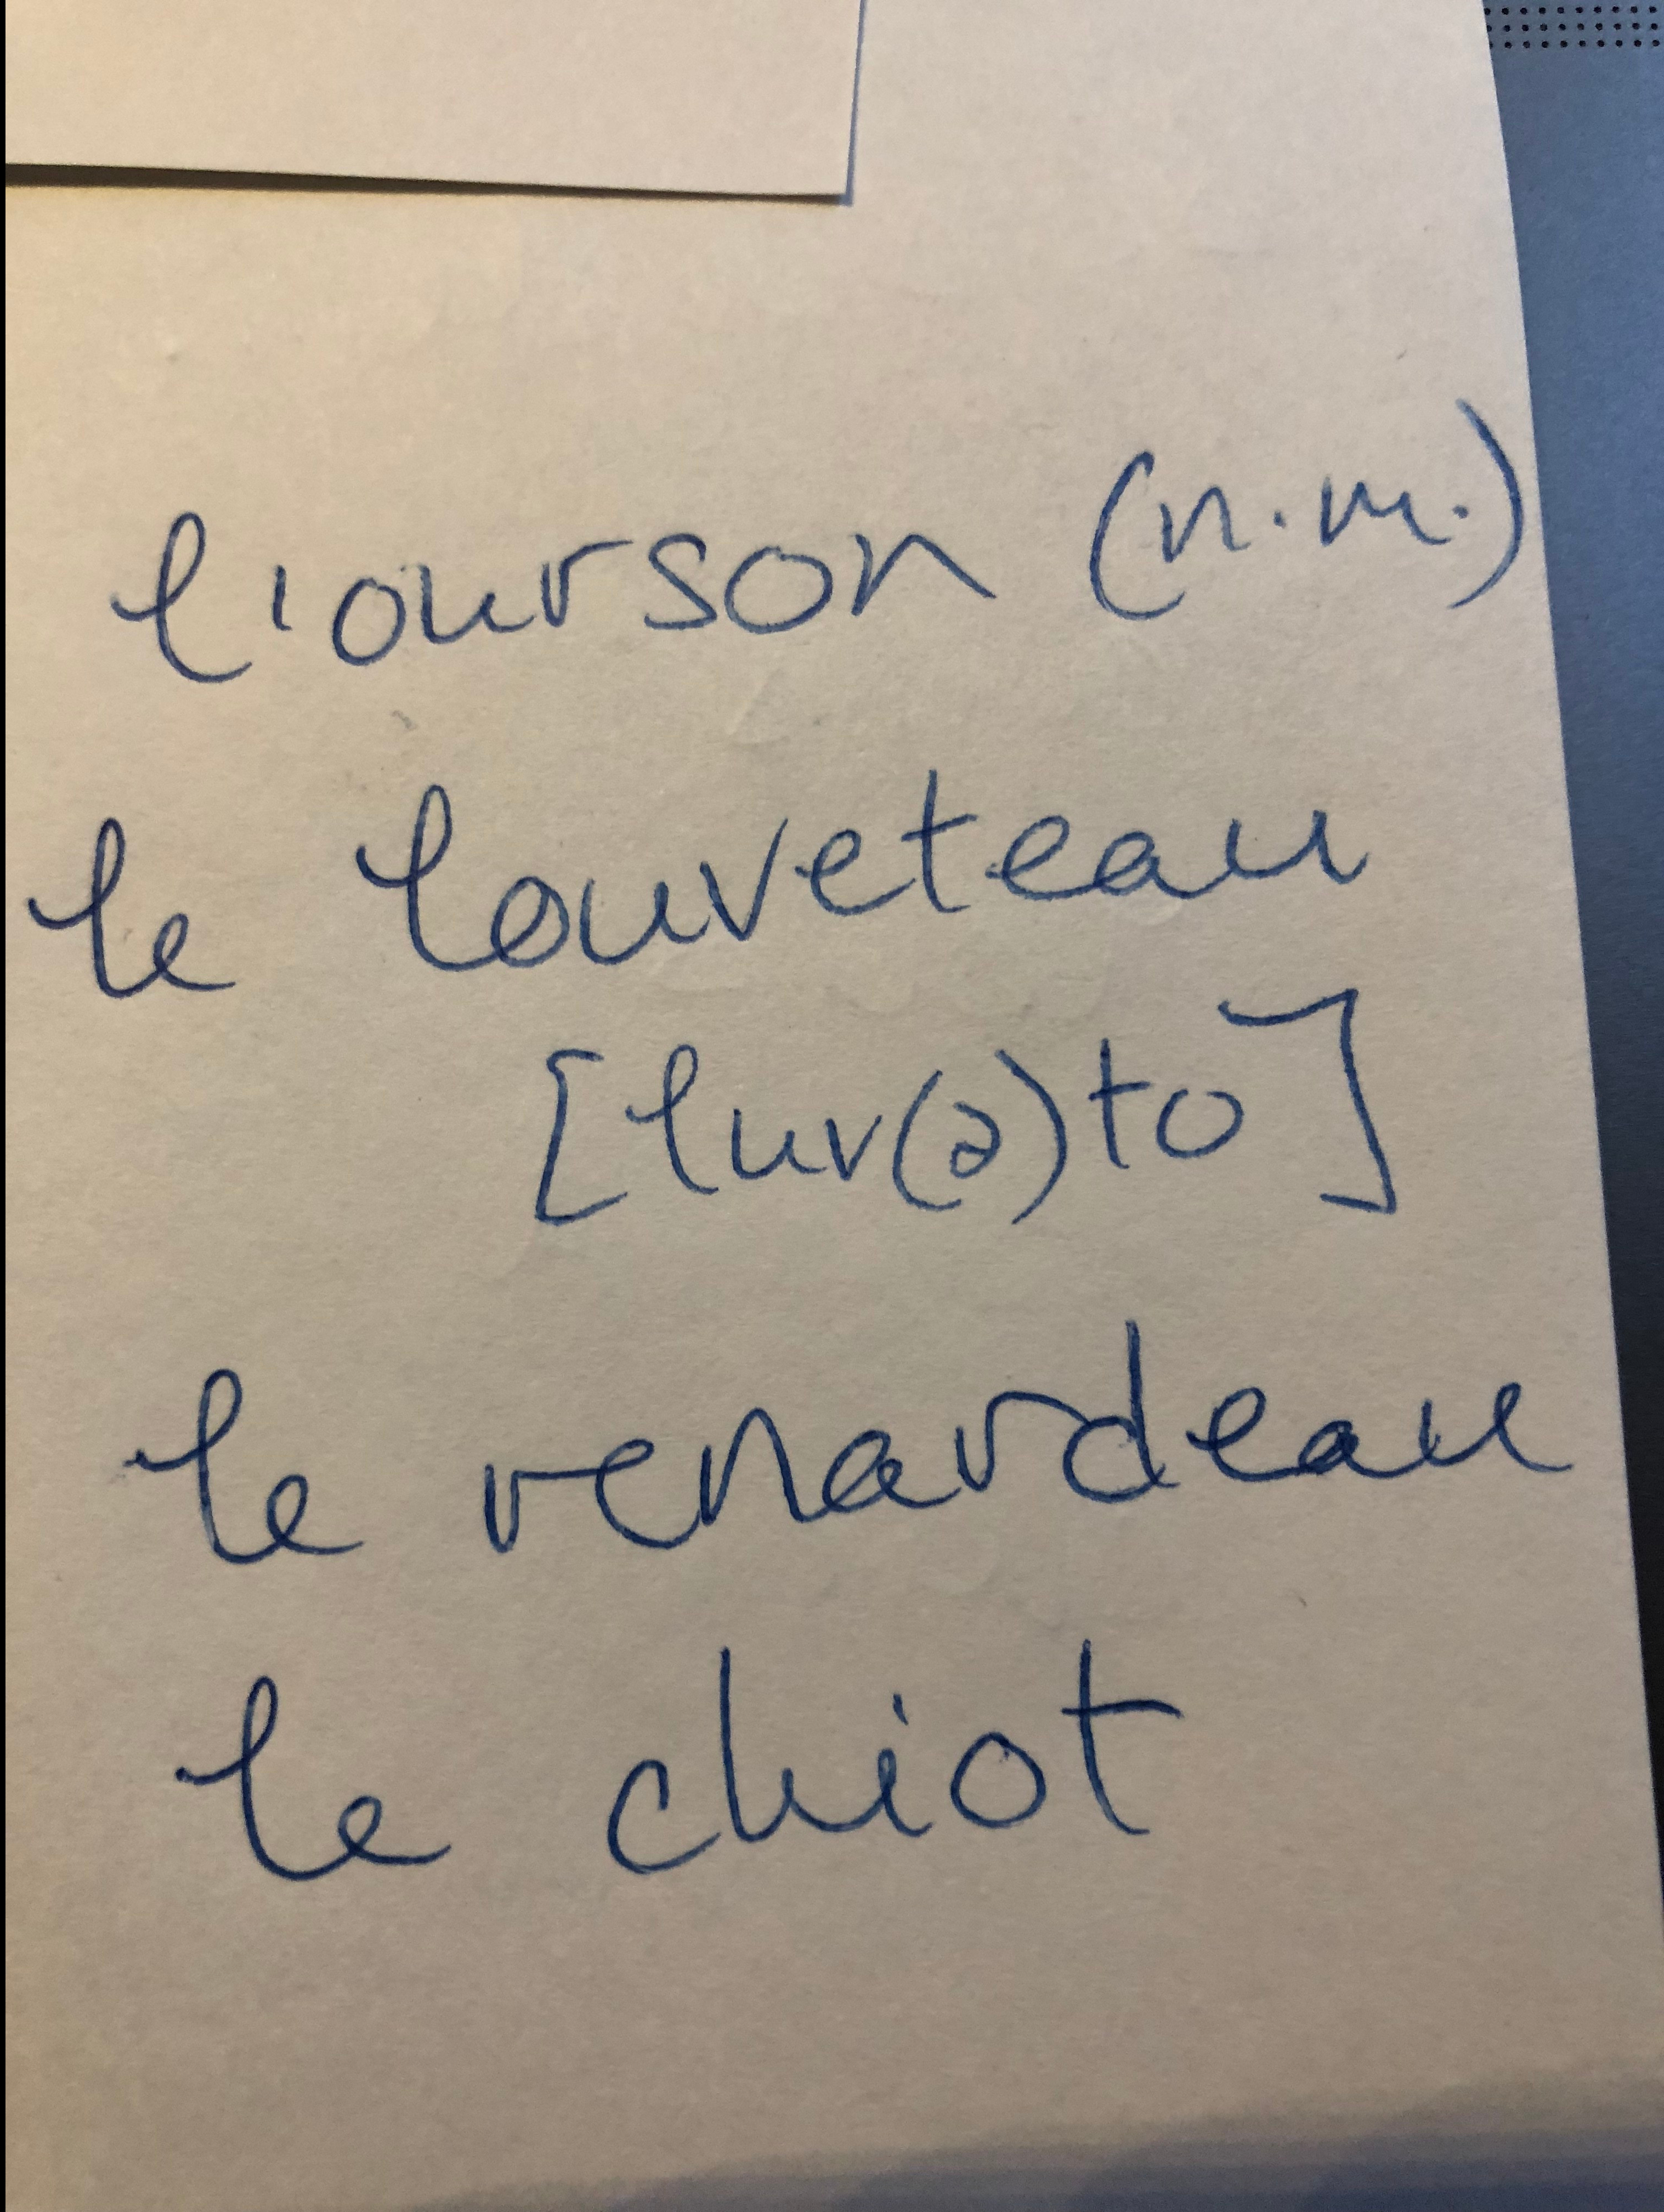 l'ourson (n.m.)
le louveteau
[luv(ə)to]
le renardeau
le chiot